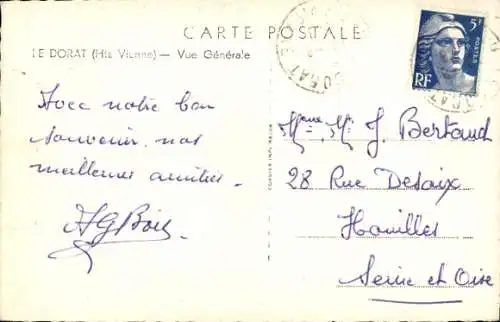 CARTE POSTALE
LE DORAT (Hte Vienne) — Vue Générale
5F
POSTES
RF
Avec notre bon
souvenir. nos
meilleures amitiés.
Mme, Mr J. Bertaud
28 Rue Desaix
Houilles
Seine et Oise